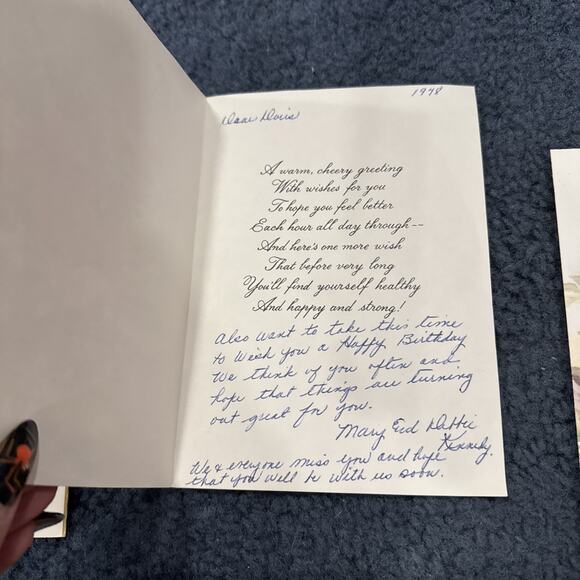 1978
Dear Doris
A warm, cheery greeting
With wishes for you
To hope you feel better
Each hour all day through--
And here's one more wish
That before very long
You'll find yourself healthy
And happy and strong!
Also want to take this time
to wish you a Happy Birthday
We think of you often and
hope that things are turning
out great for you.
Mary Ed Debbie
Kennedy.
We & everyone miss you and hope
that you will be with us soon.